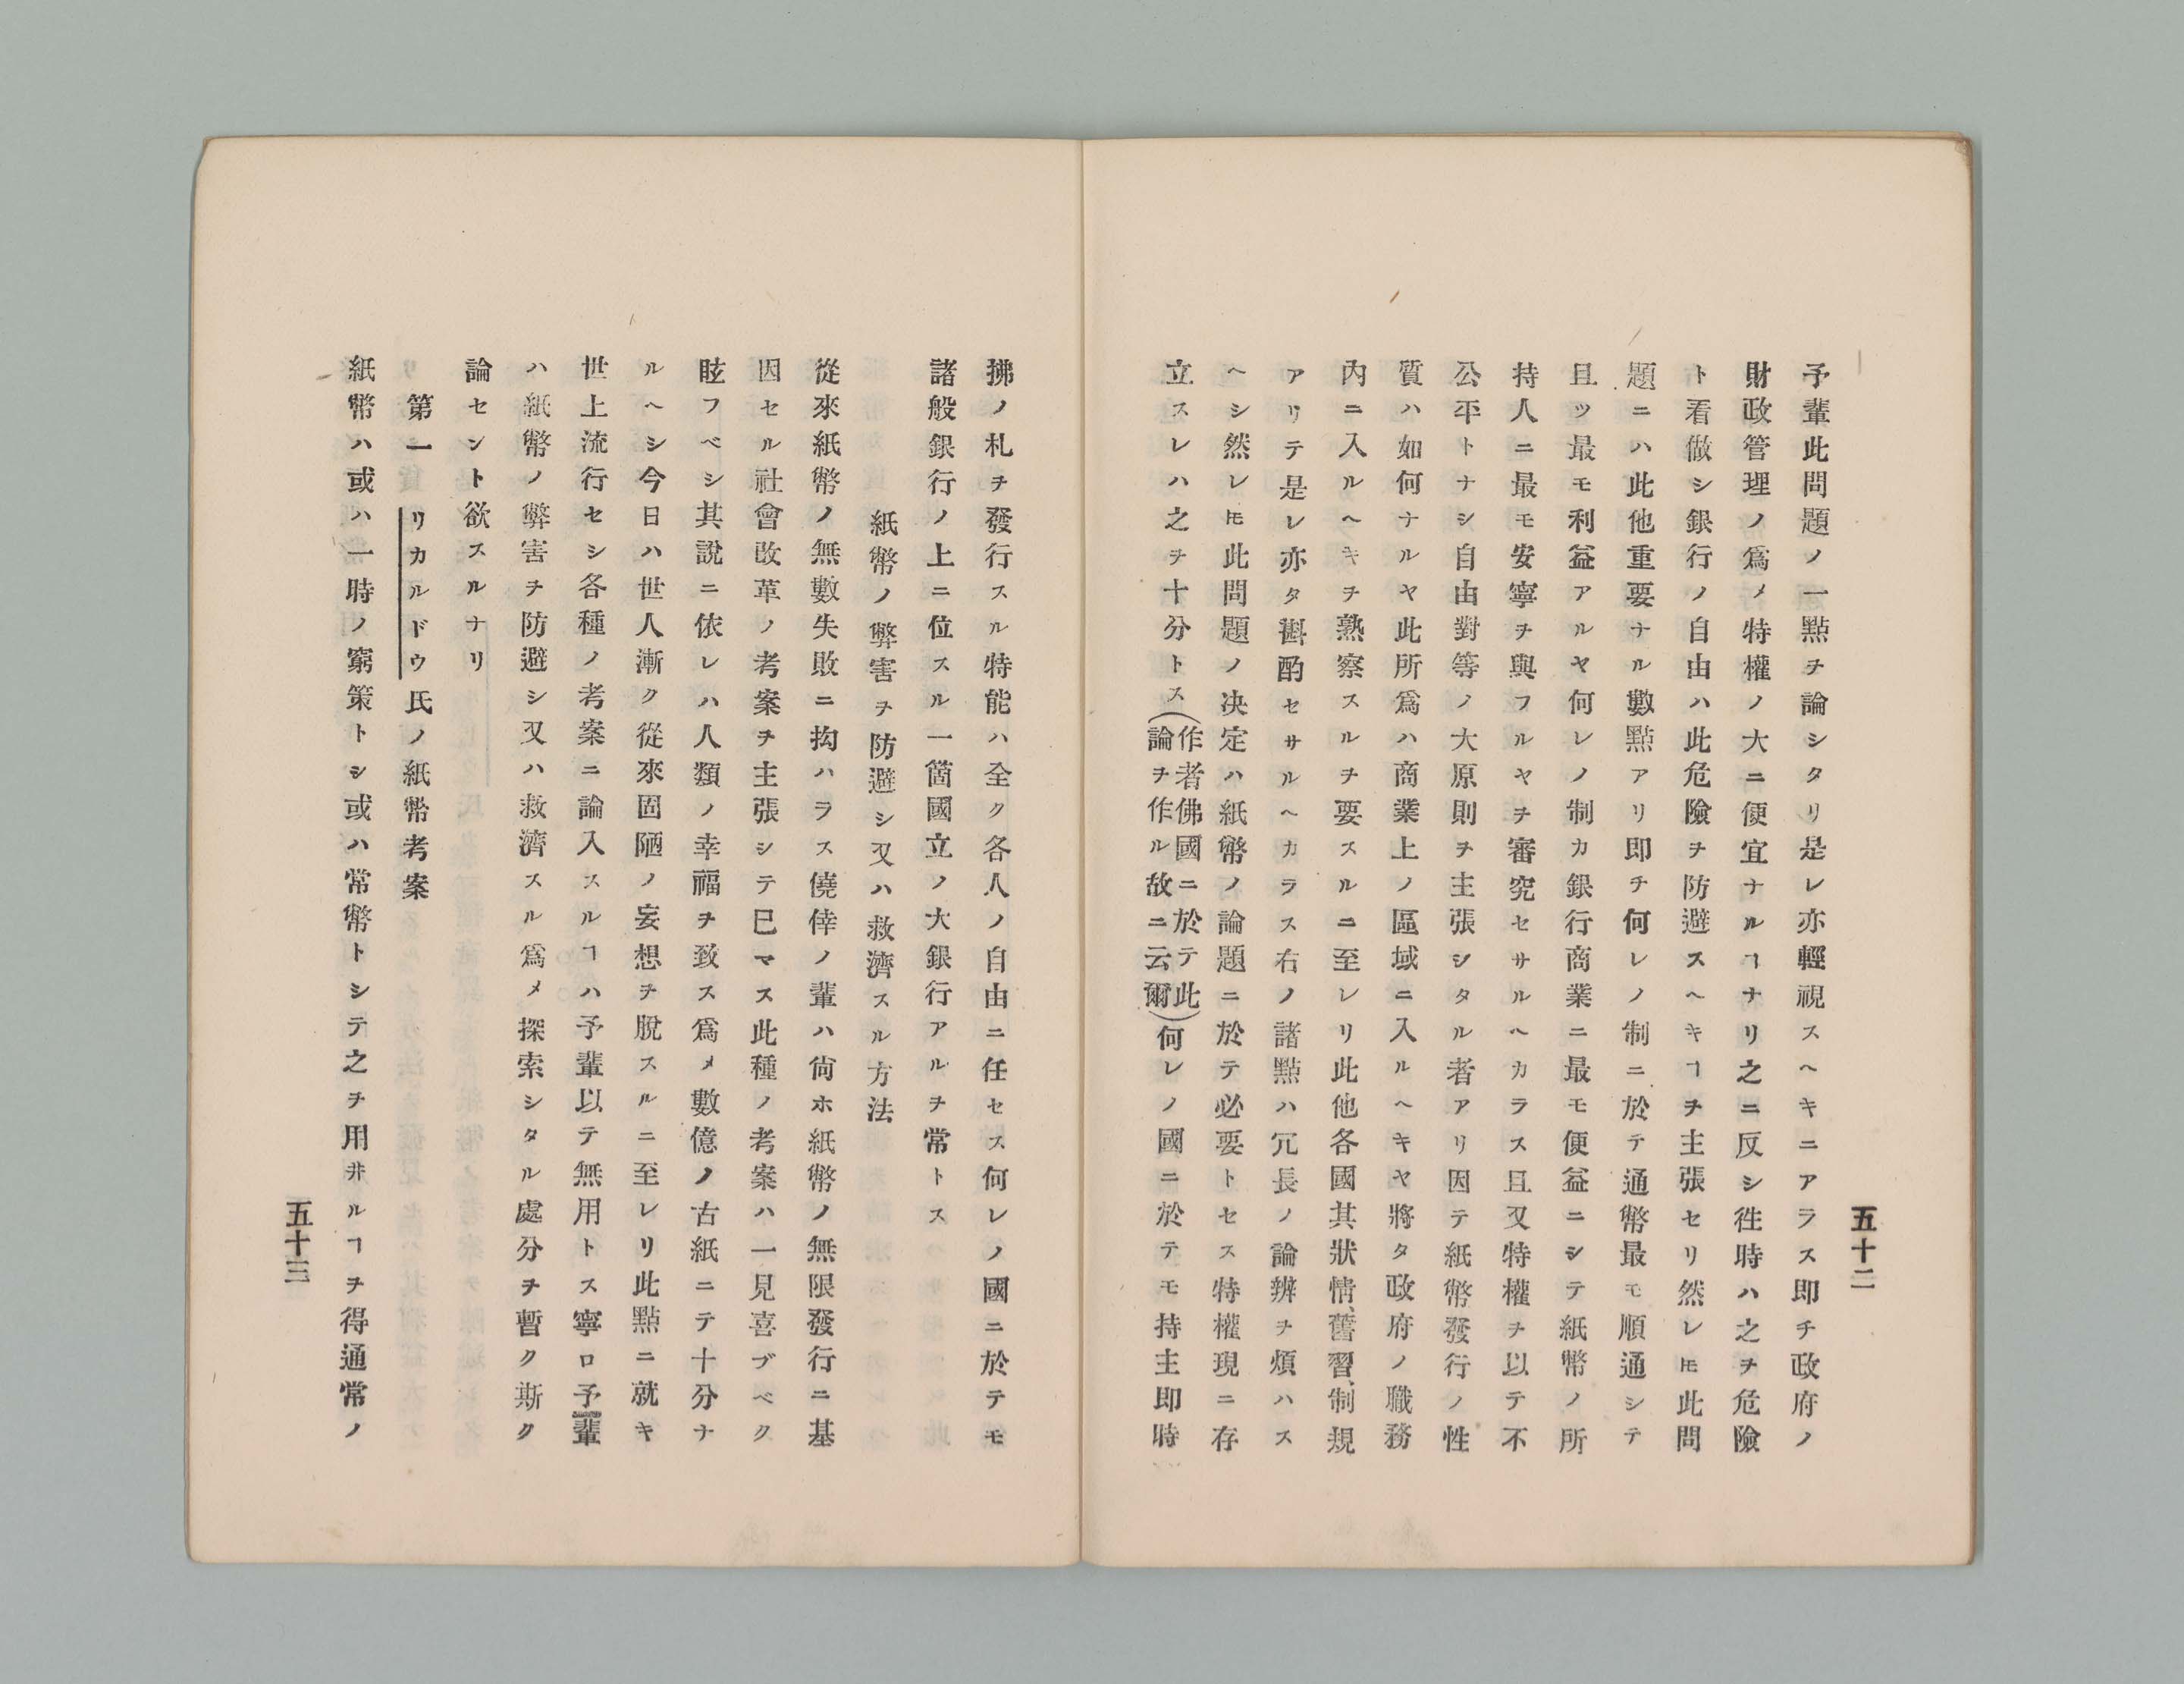 五十二
予輩此問題ノ一點ヲ論シタリ是レ亦輕視スヘキニアラス即チ政府ノ
財政管理ノ爲メ特權ノ大ニ便宜ナルヿナリ之ニ反シ徃時ハ之ヲ危險
ト看做シ銀行ノ自由ハ此危險ヲ防避スヘキヿヲ主張セリ然レ𪜈此問
題ニハ此他重要ナル數點アリ即チ何レノ制ニ於テ通幣最モ順通シテ
且ツ最モ利益アルヤ何レノ制カ銀行商業ニ最モ便益ニシテ紙幣ノ所
持人ニ最モ安寧ヲ與フルヤヲ審究セサルヘカラス且又特權ヲ以テ不
公平トナシ自由對等ノ大原則ヲ主張シタル者アリ因テ紙幣發行ノ性
質ハ如何ナルヤ此所爲ハ商業上ノ區域ニ入ルヘキヤ將タ政府ノ職務
内ニ入ルヘキヲ熟察スルヲ要スルニ至レリ此他各國其狀情、舊習、制規
アリテ是レ亦タ斟酌セサルヘカラス右ノ諸點ハ冗長ノ論辨ヲ煩ハス
ヘシ然レ𪜈此問題ノ决定ハ紙幣ノ論題ニ於テ必要トセス特權現ニ存
立スレハ之ヲ十分トス(作者佛國ニ於テ此論ヲ作ル故ニ云爾)何レノ國ニ於テモ持主即時
拂ノ札ヲ發行スル特能ハ全ク各人ノ自由ニ任セス何レノ國ニ於テモ
諸般銀行ノ上ニ位スル一箇國立ノ大銀行アルヲ常トス
紙幣ノ弊害ヲ防避シ又ハ救濟スル方法
從來紙幣ノ無數失敗ニ拘ハラス僥倖ノ輩ハ尙ホ紙幣ノ無限發行ニ基
因セル社會改革ノ考案ヲ主張シテ巳マス此種ノ考案ハ一見喜ブベク
眩フベシ其說ニ依レハ人類ノ幸福ヲ致ス爲メ數億ノ古紙ニテ十分ナ
ルヘシ今日ハ世人漸ク從來固陋ノ妄想ヲ脫スルニ至レリ此點ニ就キ
世上流行セシ各種ノ考案ニ論入スルヿハ予輩以テ無用トス寧ロ予輩
ハ紙幣ノ弊害ヲ防避シ又ハ救濟スル爲メ探索シタル處分ヲ暫ク斯ク
論セント欲スルナリ
第一 リカルドウ氏ノ紙幣考案
紙幣ハ或ハ一時ノ窮策トシ或ハ常幣トシテ之ヲ用井ルヿヲ得通常ノ
五十三